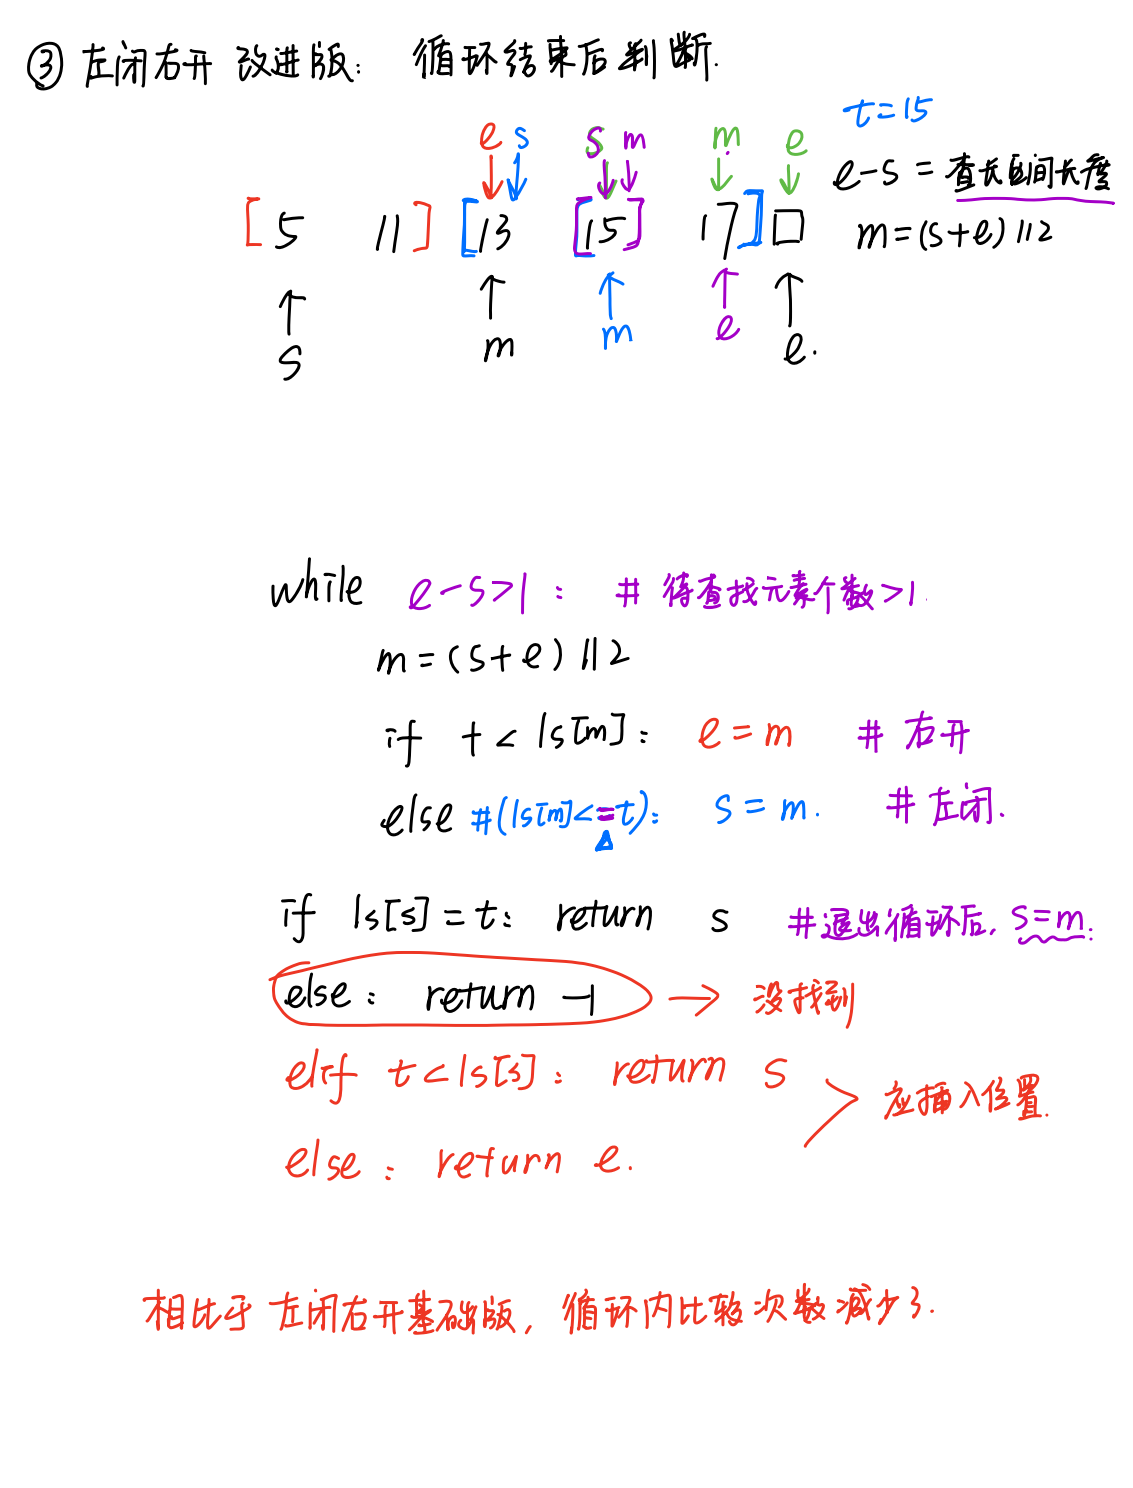 ③ 左闭右开 改进版: 循环结束后判断.
t=15
e s s m m e
e-s = 查找区间长度
[ 5 11 ] [ 13 [ 15 ] 17 ] □
m=(s+e)//2
s m m e e.
while e-s>1: # 待查找元素个数>1.
m=(s+e)//2
if t< ls[m]: e=m # 右开
else #(ls[m]<=t): s=m. # 左闭.
if ls[s]=t: return s #退出循环后, s=m.
else: return -1 → 没找到
elif t<ls[s]: return s
应插入位置.
else: return e.
相比于 左闭右开基础版, 循环内比较次数减少了.